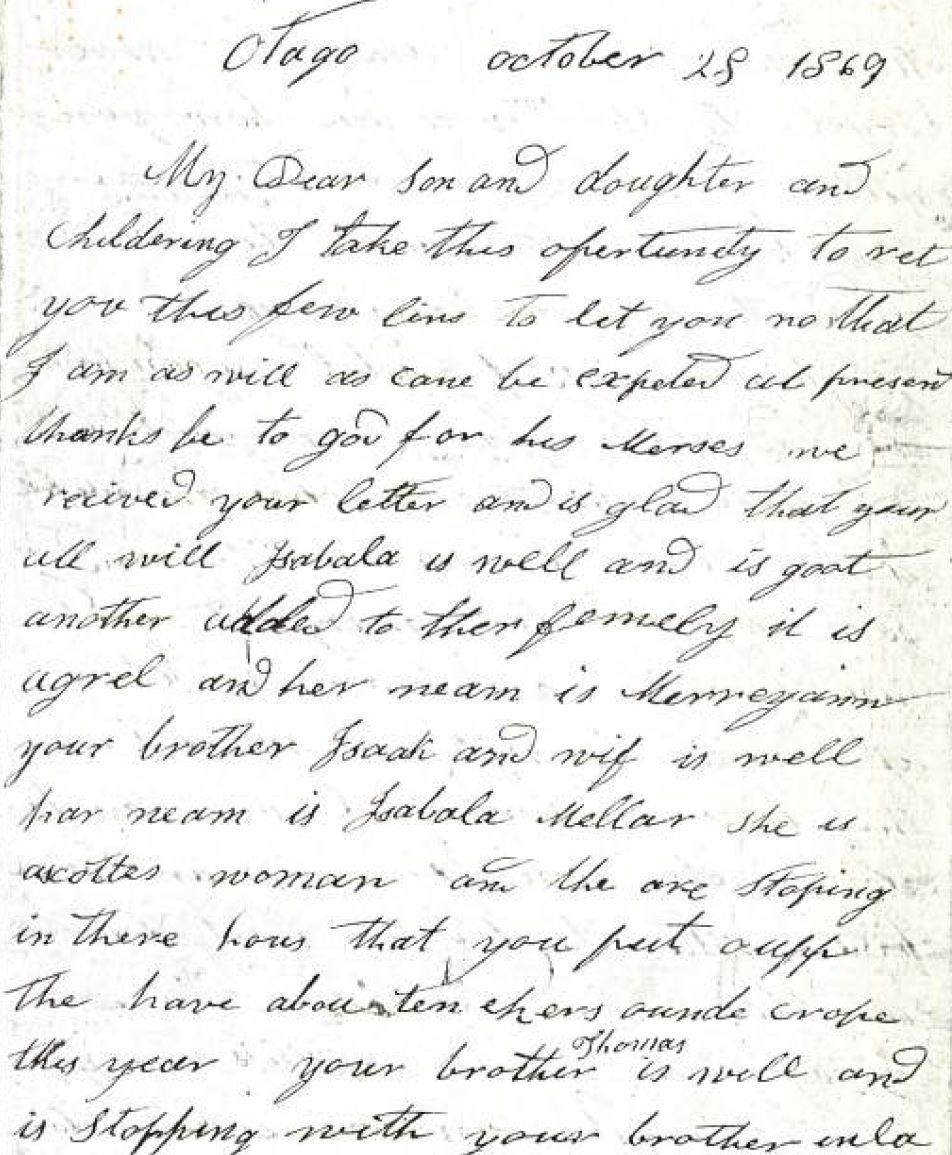 Otago october 28 1869
My Dear Son and doughter and
Childering I take this opertunity to ret
you this few lins to let you no that
I am as will as cane be expeted at present
thanks be to god for his Merses we
recived your letter and is glad that your
all will Isabala is well and is goat
another added to ther femely it is
agrel and her neam is Merreyann
your brother Isaak and wif is well
har neam is Isabala Mellar she is
ascottes woman am the are stoping
in there hous that you put oupp
the have abou ten ekers ounde crope
this year your brother Thomas is well and
is Stopping with your brother inla